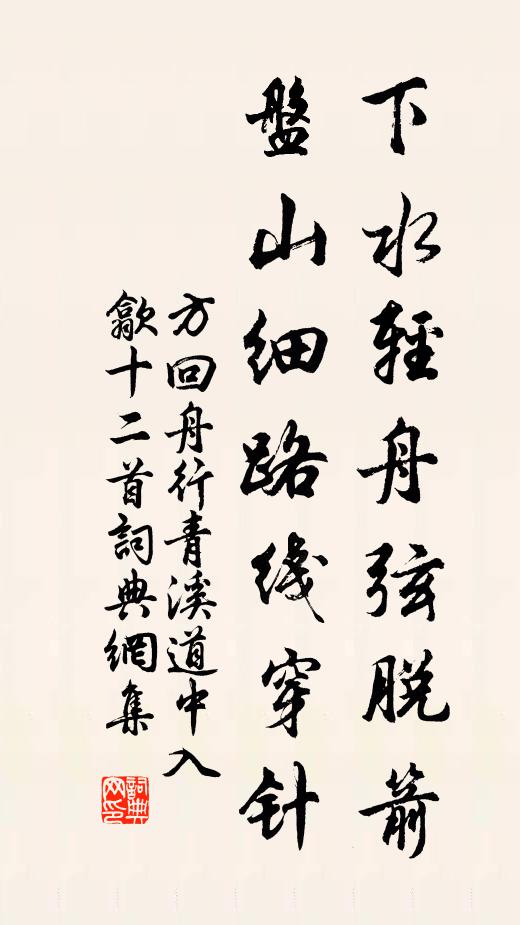 下水輕舟弦脱箭
盤山细路线穿针
方回舟行青溪道中入
歙十二首詞典網集
詞典网印